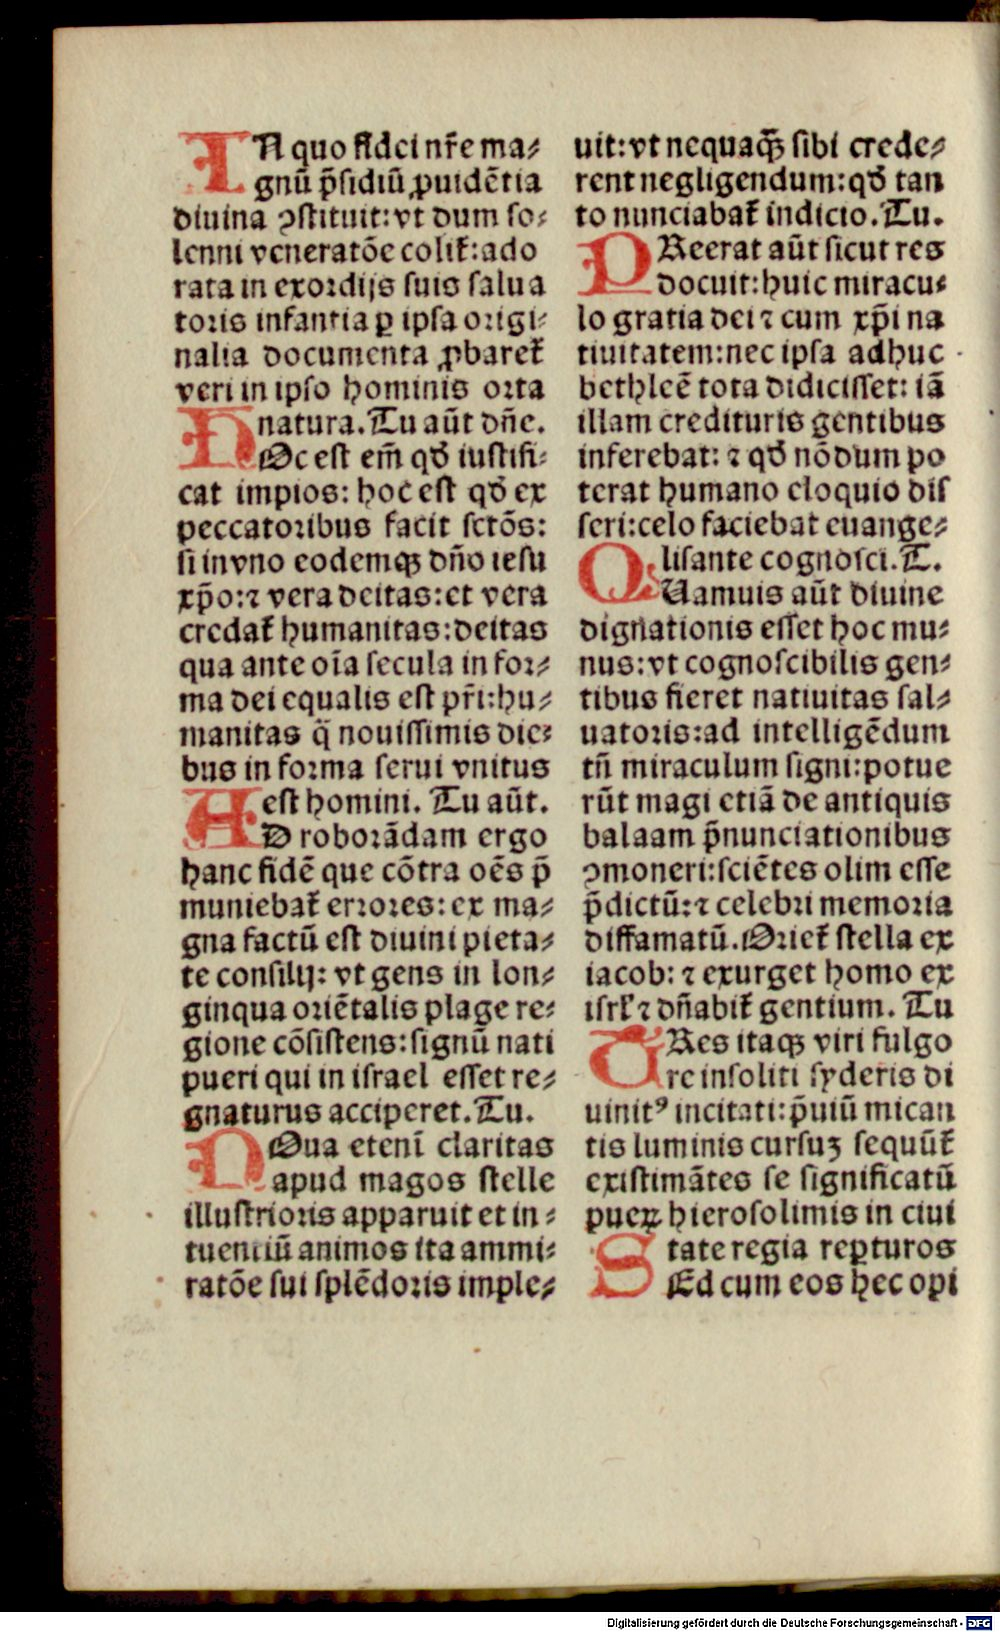 IN quo fidei nr̄e ma⸗
gnū p̄sidiū ꝓuidētia
diuina ꝯstituit: vt dum so⸗
lenni veneratōe colit᷑: ado
rata in exordijs suis salua
toris infantia ꝑ ipsa origi⸗
nalia documenta ꝓbaret᷑
veri in ipso hominis orta
natura. Tu aūt dn̄e.
HOc est em̄ qd̄ iustifi⸗
cat impios: hoc est qd̄ ex
peccatoribus facit sctōs:
si in vno eodemqꝫ dn̄o iesu
xp̄o: ⁊ vera deitas: et vera
credat᷑ humanitas: deitas
qua ante oīa secula in for⸗
ma dei equalis est pr̄i: hu⸗
manitas q̄ nouissimis die⸗
bus in forma serui vnitus
est homini. Tu aūt.
AD roborādam ergo
hanc fidē que cōtra oēs p̄
muniebat᷑ errores: ex ma⸗
gna factū est diuini pieta⸗
te consilij: vt gens in lon⸗
ginqua oriētalis plage re⸗
gione cōsistens: signū nati
pueri qui in israel esset re⸗
gnaturus acciperet. Tu.
NOua etenī claritas
apud magos stelle
illustrioris apparuit et in⸗
tuentiū animos ita ammi⸗
ratōe sui splēdoris imple⸗
uit: vt nequaqꝫ̄ sibi crede⸗
rent negligendum: qd̄ tan
to nunciabat᷑ indicio. Tu.
PReerat aūt sicut res
docuit: huic miracu⸗
lo gratia dei ⁊ cum xp̄i na
tiuitatem: nec ipsa adhuc
bethleē tota didicisset: iā
illam credituris gentibus
inferebat: ⁊ qd̄ nōdum po
terat humano eloquio dis
seri: celo faciebat euange⸗
lisante cognosci. T.
QUamuis aūt diuine
dignationis esset hoc mu⸗
nus: vt cognoscibilis gen⸗
tibus fieret natiuitas sal⸗
uatoris: ad intelligēdum
tn̄ miraculum signi: potue
rūt magi etiā de antiquis
balaam p̄nunciationibus
ꝯmoneri: sciētes olim esse
p̄dictū: ⁊ celebri memoria
diffamatū. Oriet᷑ stella ex
iacob: ⁊ exurget homo ex
isrl̄ ⁊ dn̄abit᷑ gentium. Tu
TRes itaqꝫ viri fulgo
re insoliti syderis di
uinitꝰ incitati: p̄uiū mican
tis luminis cursuꝫ sequūt᷑
existimātes se significatū
pueꝝ hierosolimis in ciui
tate regia reꝑturos
SEd cum eos hec opi
Digitalisierung gefördert durch die Deutsche Forschungsgemeinschaft - DFG